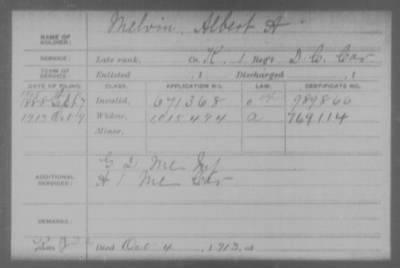 NAME OF SOLDIER: Melvin, Albert A
SERVICE: Late rank, Co. K, 1 Reg't D.C. Cav
TERM OF SERVICE: Enlisted , 1 Discharged , 1
DATE OF FILING. CLASS. APPLICATION NO. LAW. CERTIFICATE NO.
1888 Sept 7 Invalid, 671368 989866
1913 Oct Widow, 1015494 a 769114
Minor,
ADDITIONAL SERVICES: G 2 Me Inf
H 1 Me Cav
REMARKS:
Died Oct 4, 1913, at